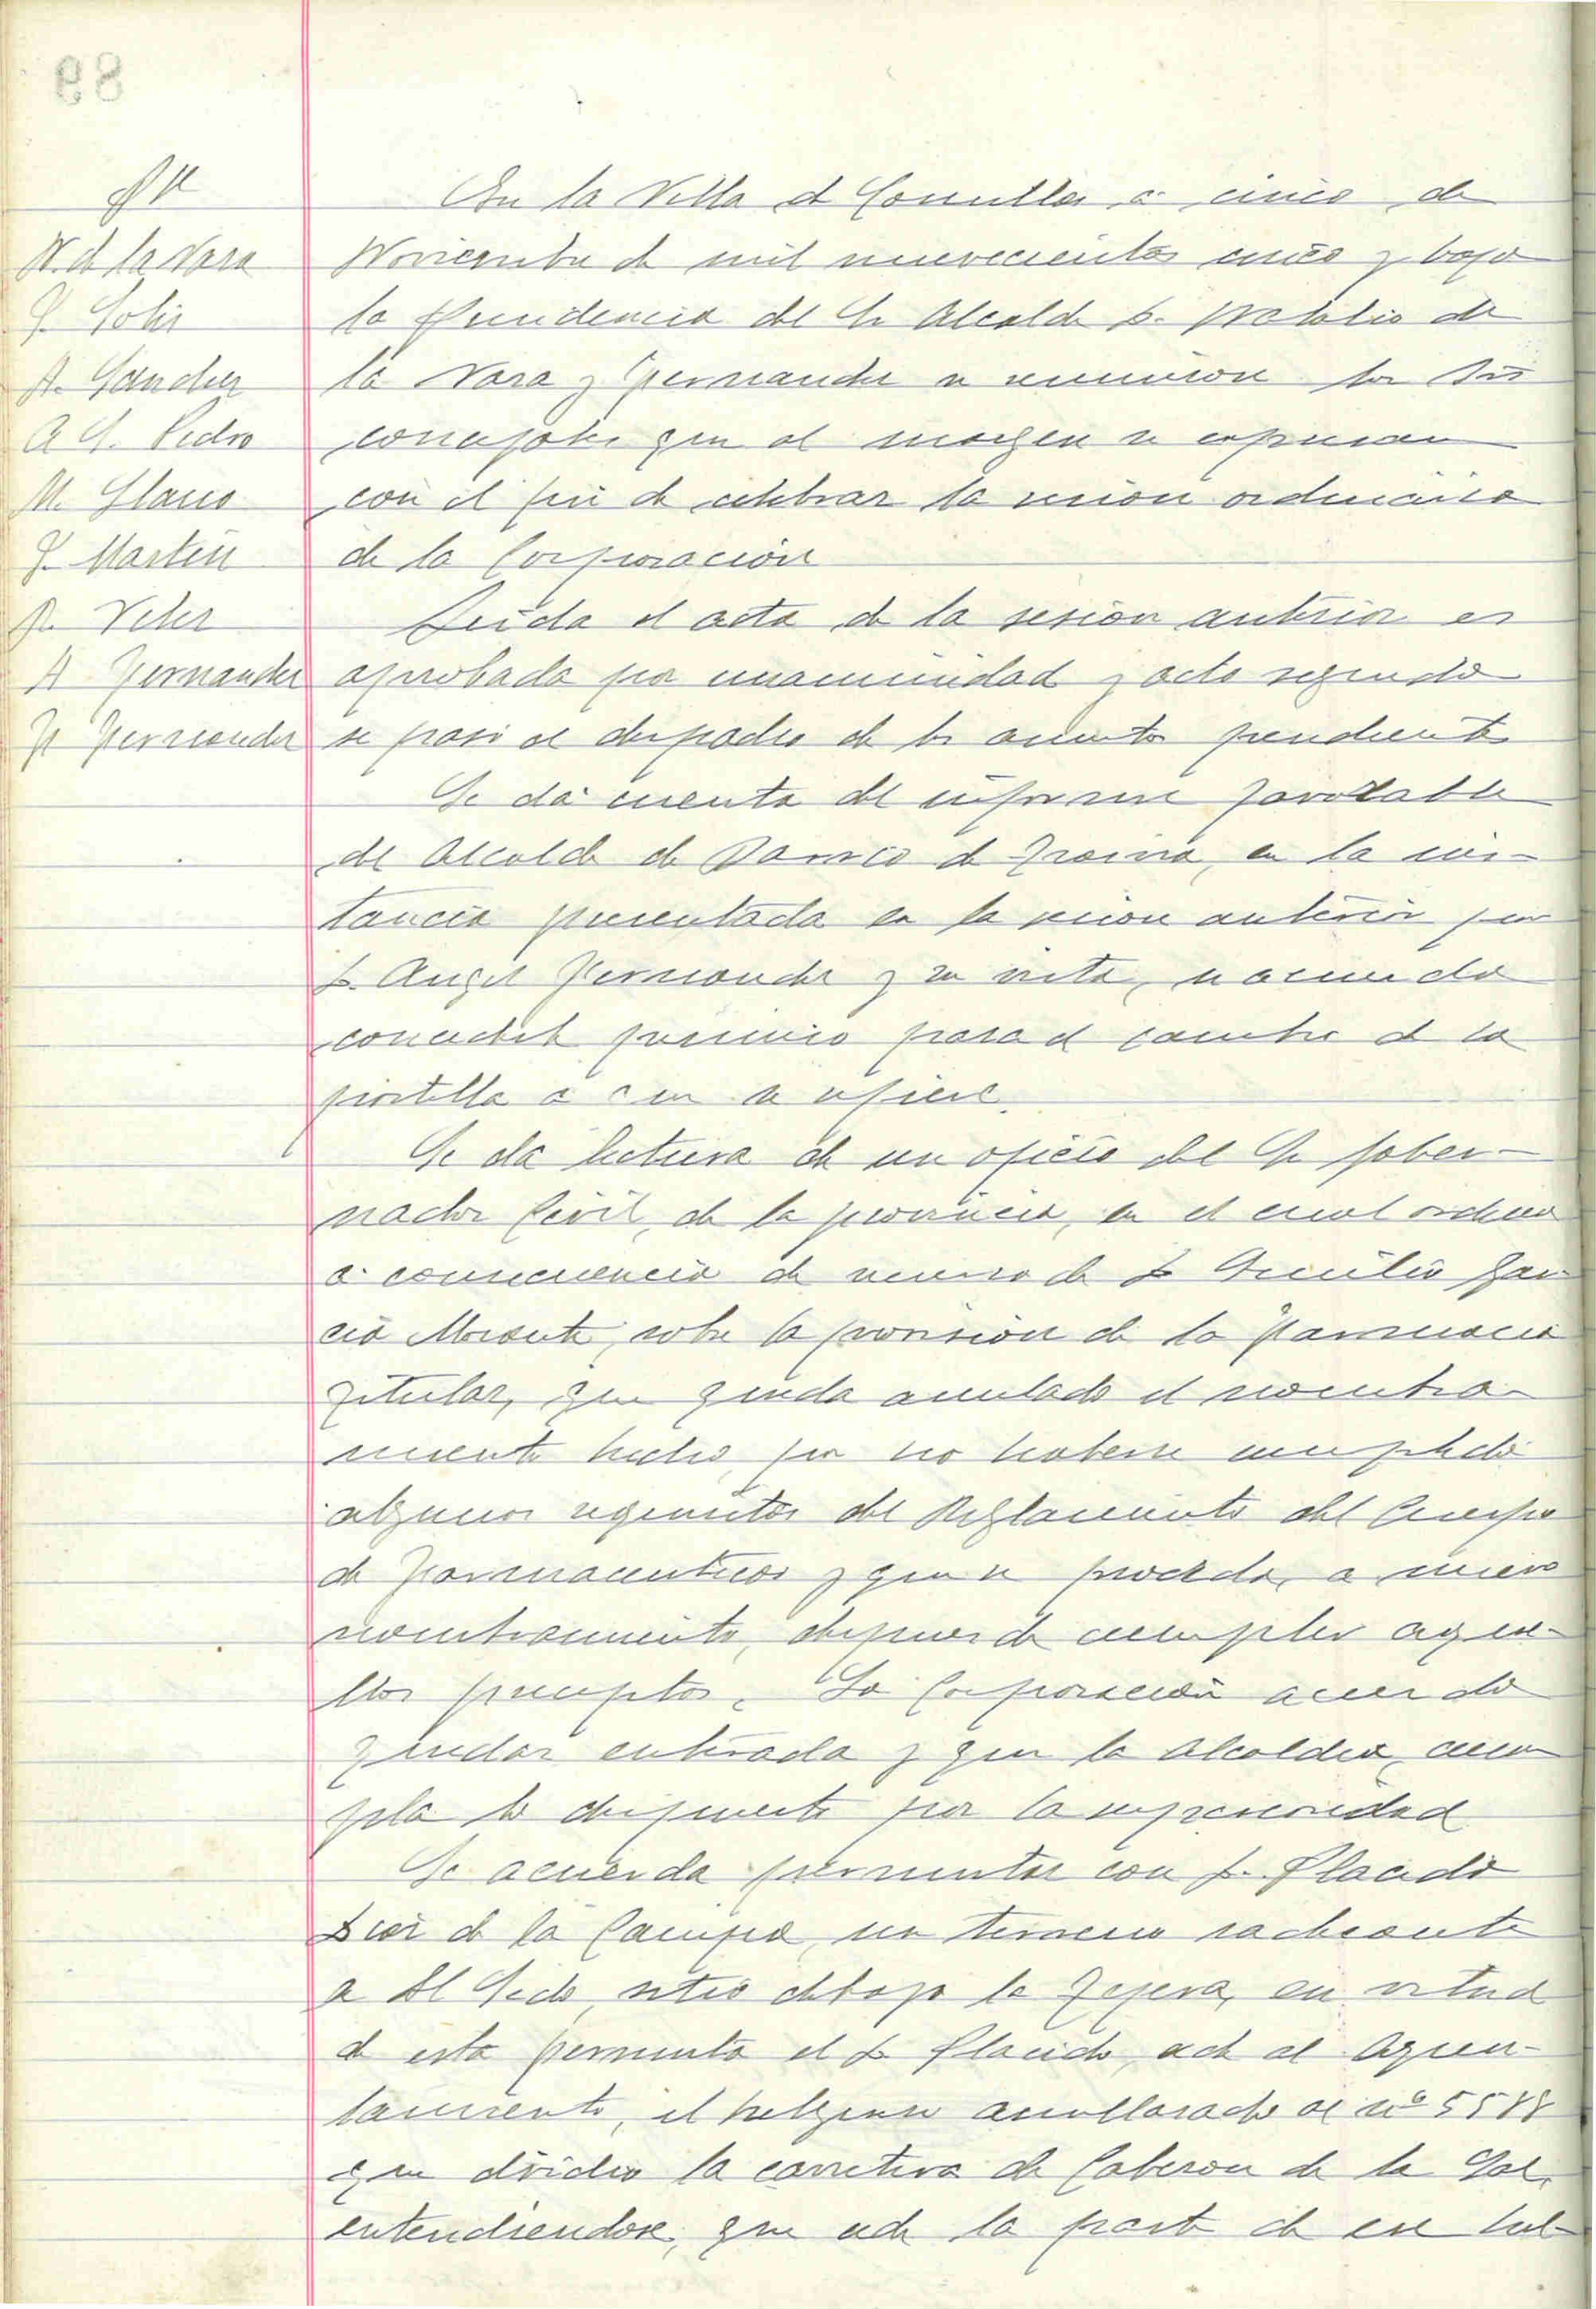 N. de la Vara
J. Solis
A. Sanchez
A S. Pedro
M. Llano
J. Martin
R. Velez
A Fernandez
Fernandez
En la Villa de Comillas a cinco de
Noviembre de mil novecientos cinco y bajo
la Presidencia del Sr Alcalde D. de
la Vara y Fernandez se reunieron los Sres
concejales que al margen se expresan
con el fin de celebrar la sesion ordinaria
de la Corporación
Leida el acta de la sesion anterior es
aprobada por unanimidad y acto seguido
se pasó al despacho de los asuntos pendientes
Se dá cuenta del informe favorable
del Alcalde de Barrio de en la ins-
tancia presentada en la sesion anterior por
D. Angel Fernandez y en vista, se acuerda
concederle permiso para el cambio de la
portilla a que se refiere.
Se da lectura de un oficio del Sr Gober-
nador Civil, de la provincia, en el cual ordena
a consecuencia de recurso de D Emilio Gar
cia Morante, sobre la provision de la Farmacia
Titular, que queda anulado el nombra-
miento hecho por no haberse cumplido
algunos requisitos del Reglamento del Cuerpo
de Farmaceuticos y que se proceda, a nuevo
nombramiento, despues de cumplir aque-
llos preceptos. La Corporación acuerda
quedar enterada y que la Alcaldia cum
pla lo dispuesto por la superioridad
Se acuerda permutar con D. Placido
Diaz de la Campa, un terreno radicante
a El sitio debajo la Tejera, en virtud
de esta permuta el D Placido, cede al Ayun-
tamiento, el amillarado al nº
que dividio la carretera de Cabezon de la Sal,
entendiendose, que cede la parte de ese